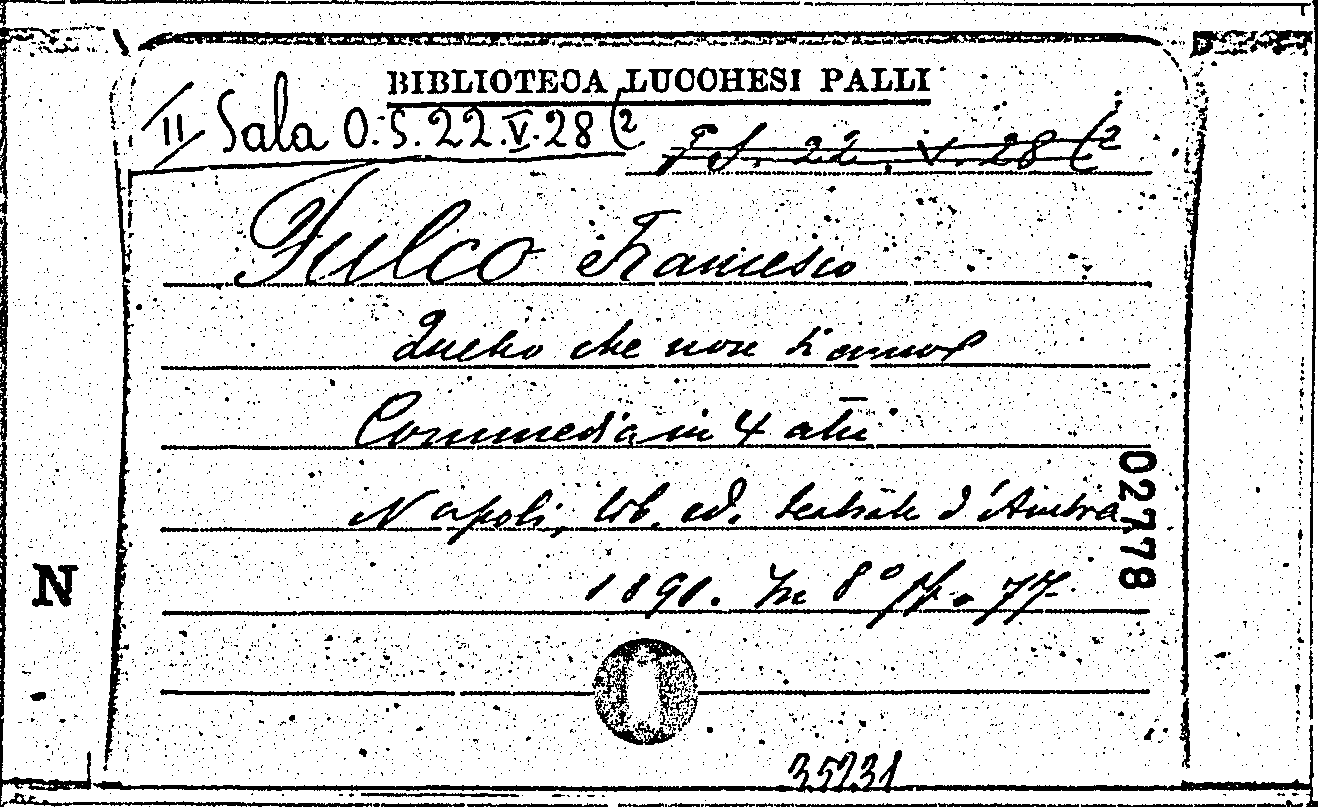 BIBLIOTECA LUCCHESI PALLI
II Sala O.S.22.V.28(2
F.S. 22. V. 28(2
Fulco Francesco
Quello che non si
Commedia in 4 atti
Napoli, lib. ed. teatrale d'Ambra
1891. In 8° pp. 77
02778
N
35231